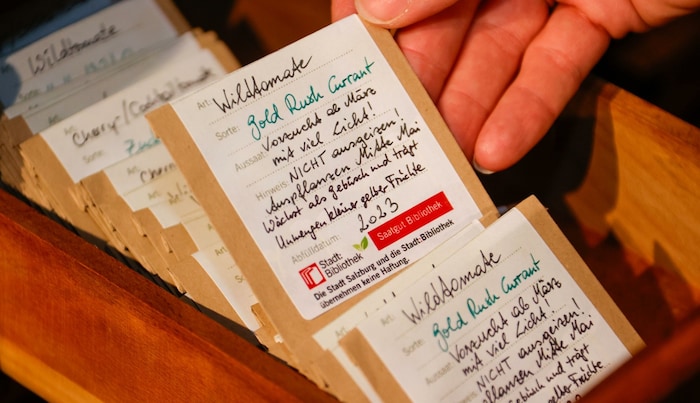 Wildtomate
Art: Cherry-/Cocktailtomate
Sorte:
Cherry
Art: Wildtomate
Sorte: Gold Rush Currant
Aussaat: Vorzucht ab März
mit viel Licht!
Hinweis: NICHT ausgeizen!
Auspflanzen Mitte Mai
Wächst als Gebüsch und trägt
Unmengen kleiner gelber Früchte
Abfülldatum: 2023
Stadt:
Bibliothek
Saatgut Bibliothek
Die Stadt Salzburg und die Stadt:Bibliothek
übernehmen keine Haftung.
Art:
Art: Wildtomate
Sorte: Gold Rush Currant
Aussaat: Vorzucht ab März
mit viel Licht!
NICHT ausgeizen!
pflanzen Mitte Mai
Gebüsch und trägt
gelber Früchte